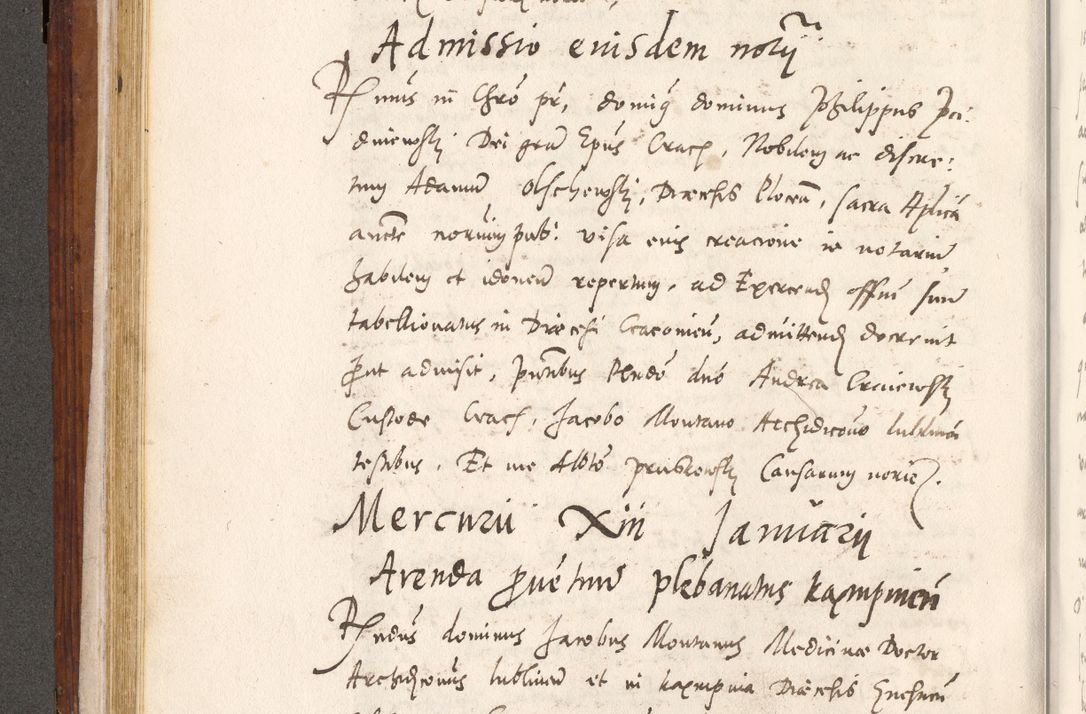 Admissio eiusdem notrÿ
Rmus in Chro pr, domiq dominus Philippus Pad:
dniewsky Dei gra Epus Crac, Nobilem ac discre:
tum Adamu Olschewsky, Diæcesis Plocen, sacra Aplica
aucte notrium pub: visa eius creacione in notariu
habilem et idoneu repertum, ad Exercend offm suu
tabellionatus in Diæcesi Cracovien, admittend decrevit
put admisit, pntibus Rndo dno Andrea Crniewsky
Custode Crac, Jacobo Montano Archidicono lublinen
testibus, Et me Albto Causarum norie.
Mercurii Xiii Januarij
Arenda puetuu plebanatus kaxmpinen
Rndus dominus Jacobus Montanus Medicinæ Doctor
Archidiconus lublinen et in kaxmpnia Diæcesis Gnesnen